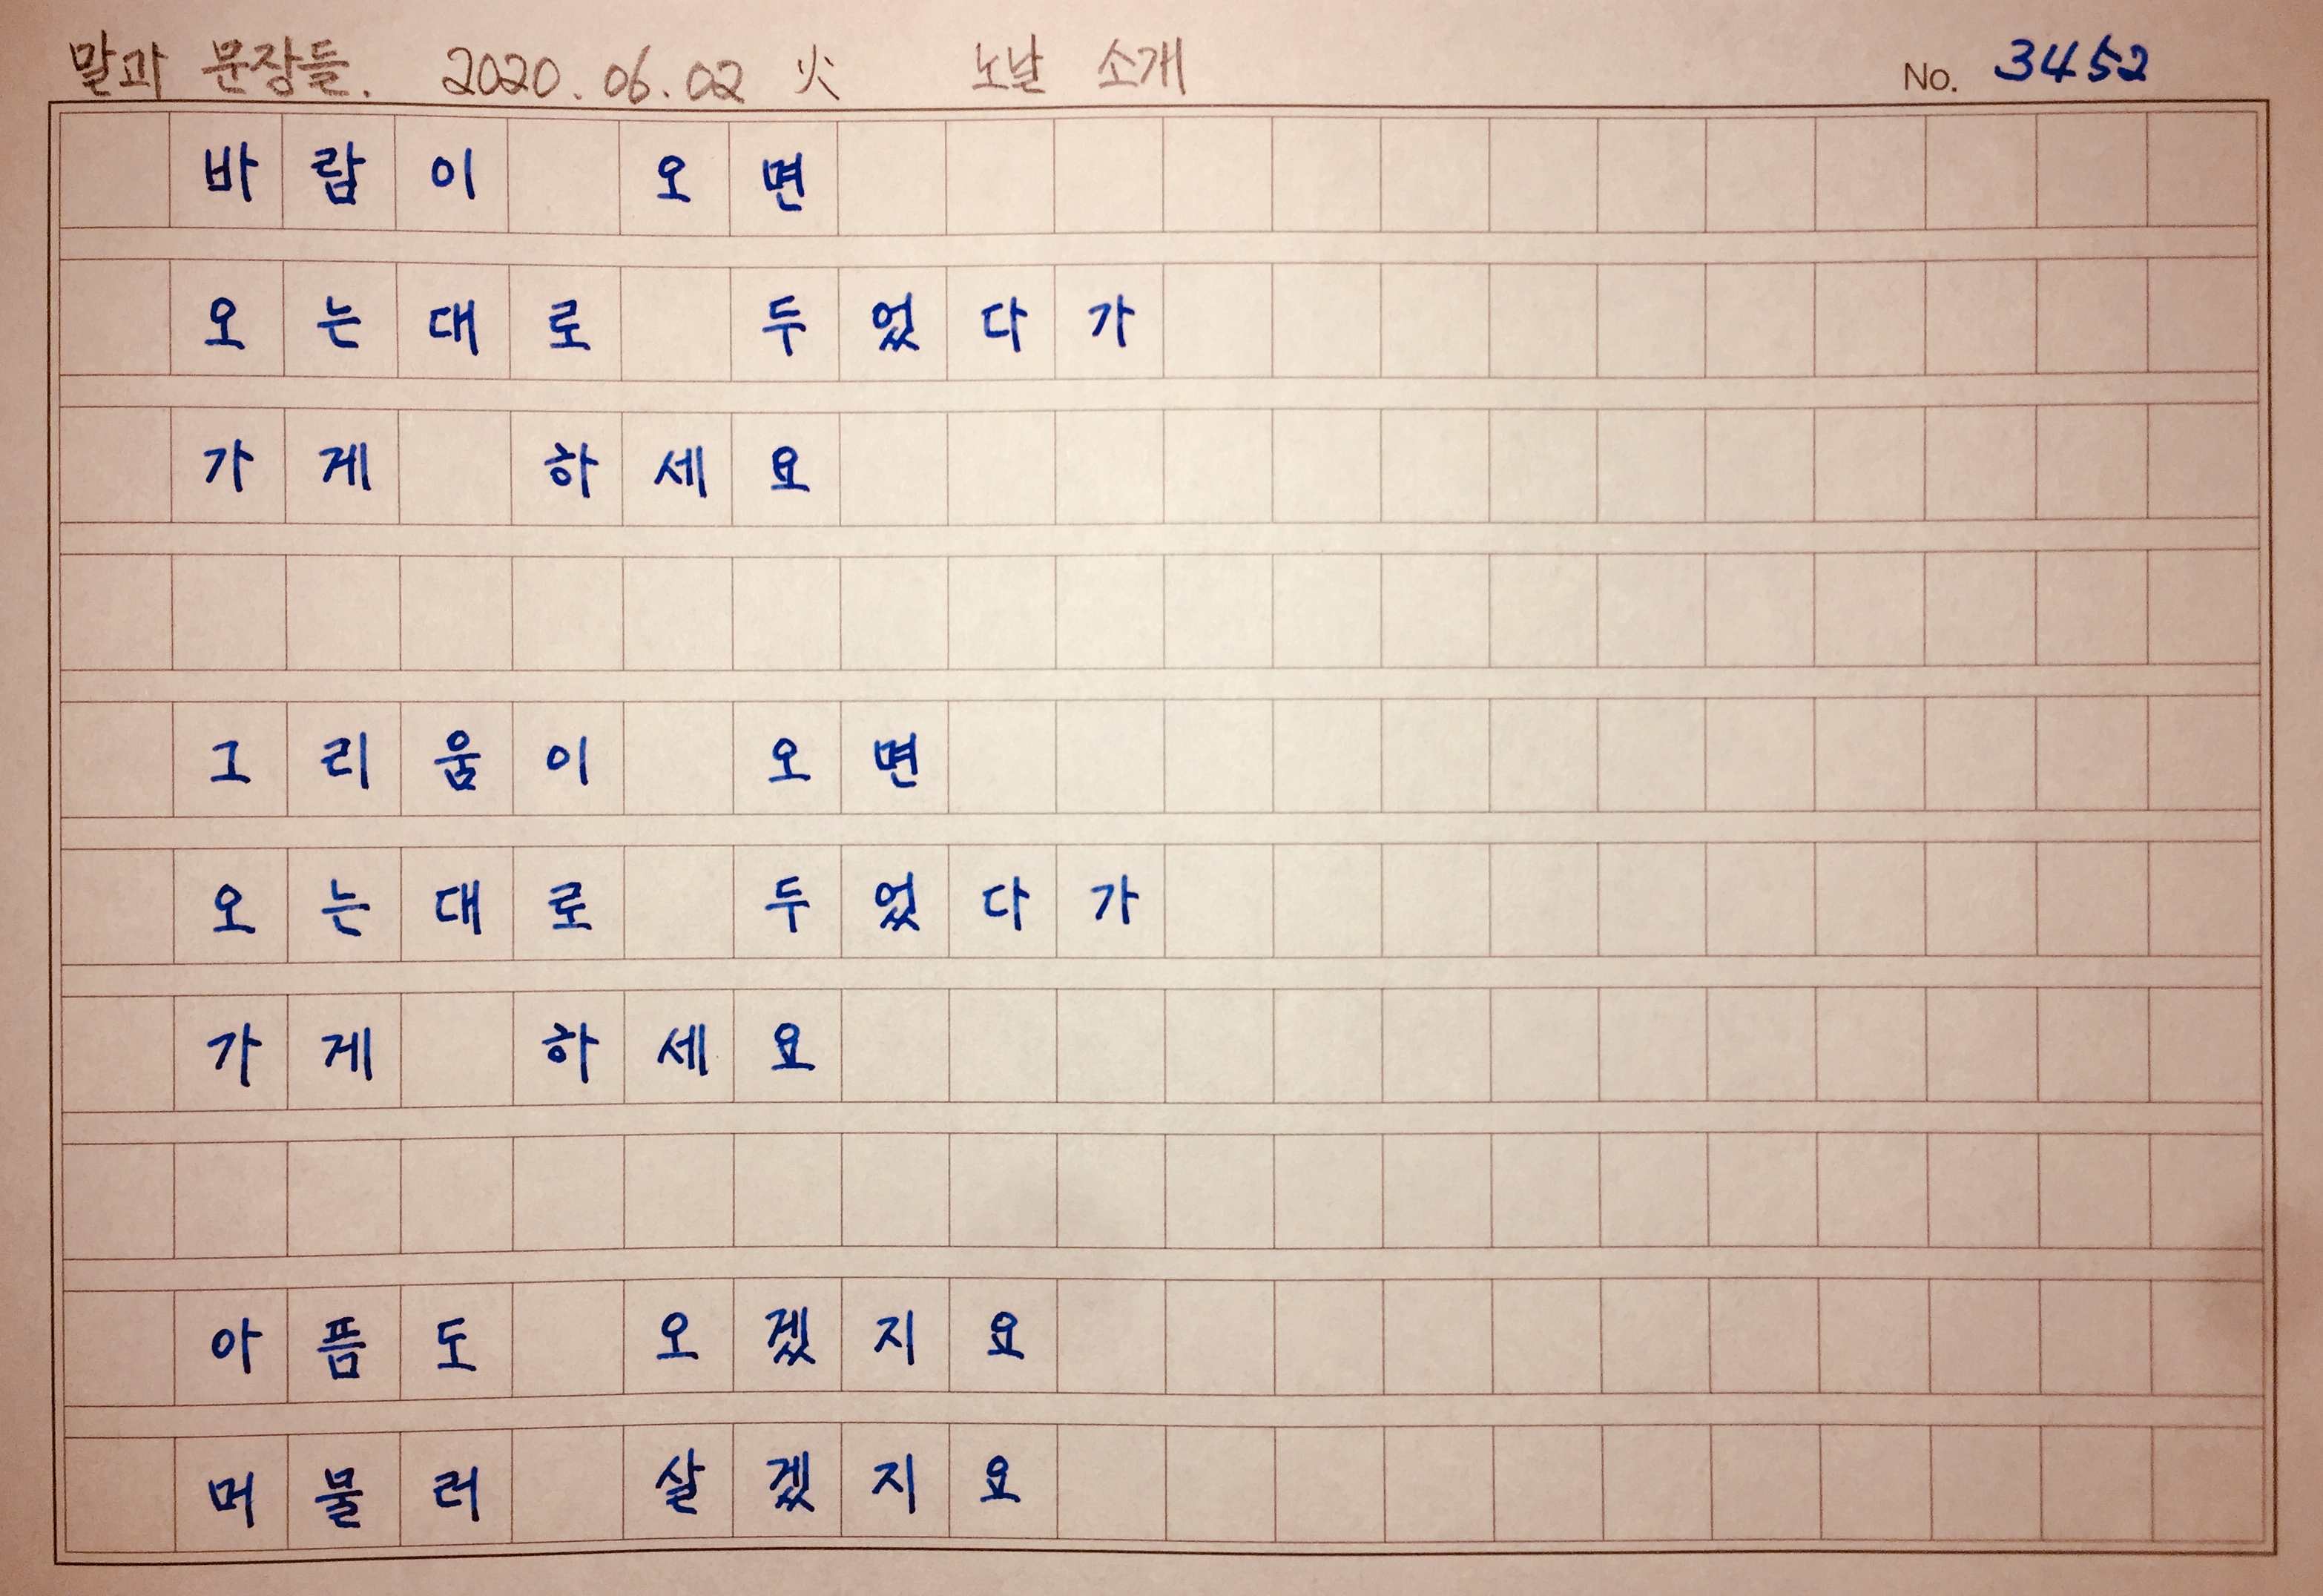 말과 문장들. 2020.06.02 火 노날 소개 No. 3452
바람이 오면
오는대로 두었다가
가게 하세요
그리움이 오면
오는대로 두었다가
가게 하세요
아픔도 오겠지요
머물러 살겠지요